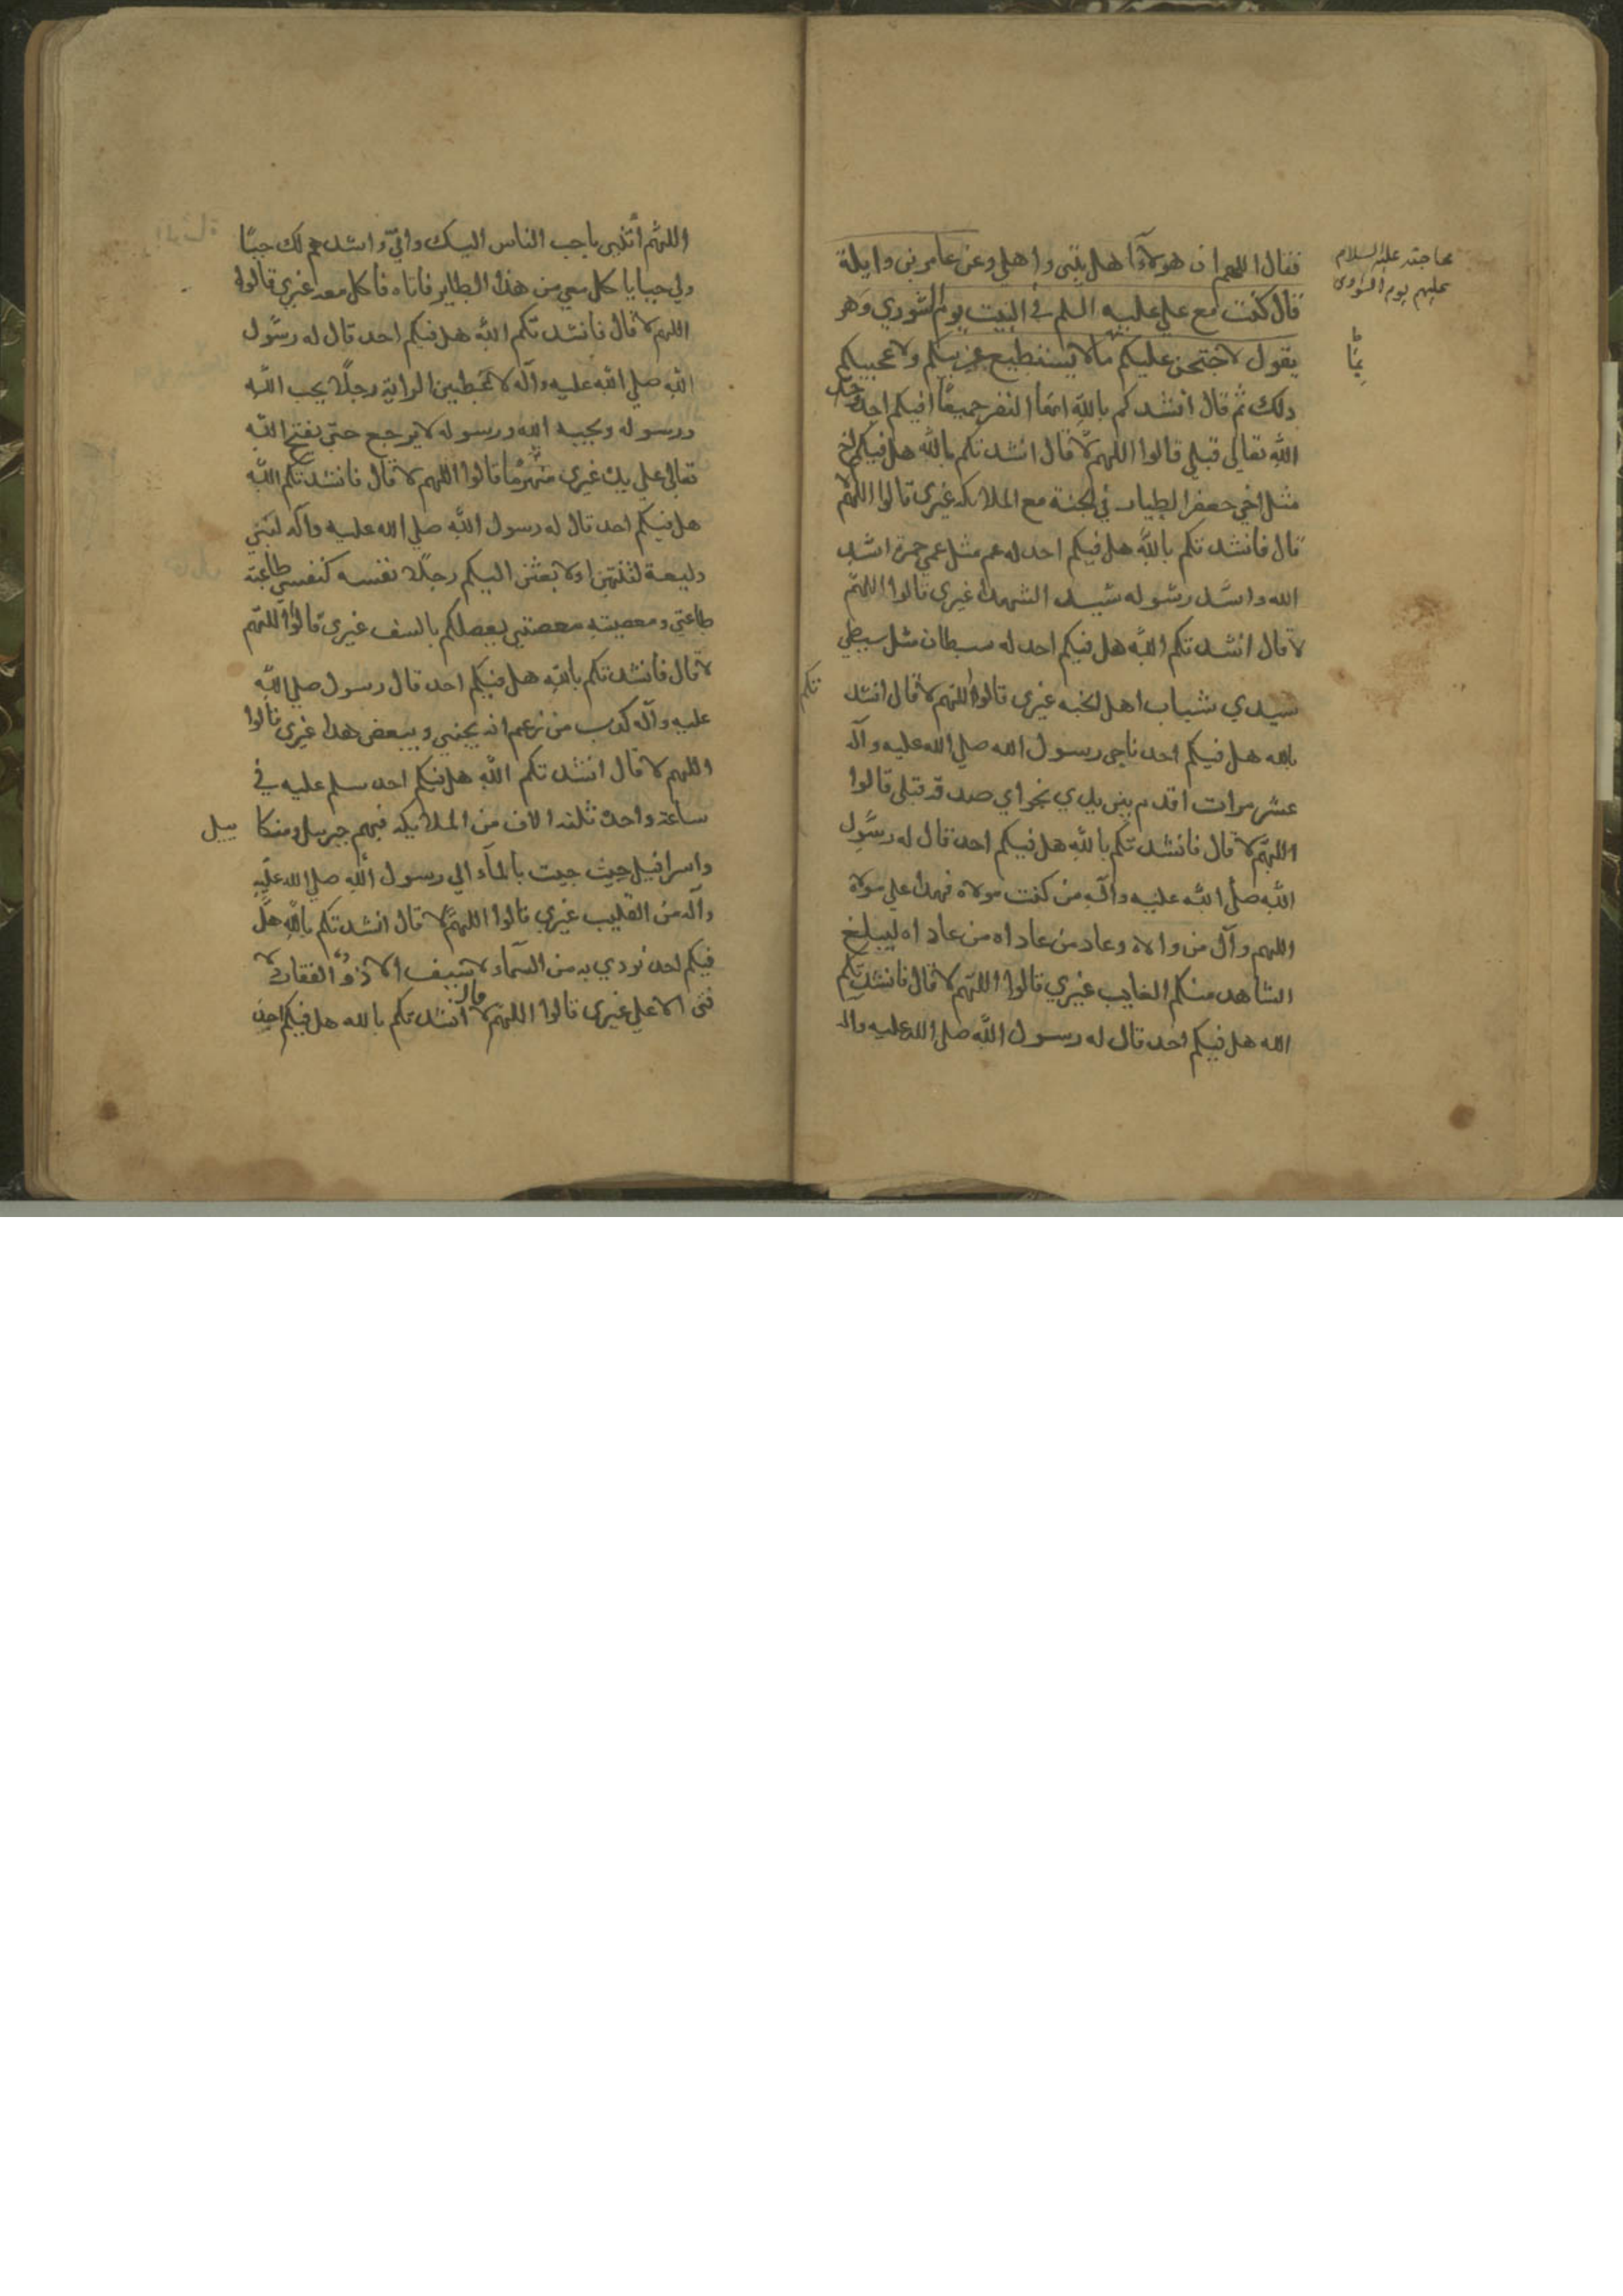 فقال اللهم ان هولآء اهل بيتي واهلي وعن عامر بن وايلة
قال كنت مع علي عليه السلم في البيت يوم الشوري وهو
يقول لاحتجن عليكم مالا يستطيع عربيكم ولا عجميكم
ذلك ثم قال انشدكم بالله ايها النفر جميعًا افيكم احد وحد
الله تعالى قبلي قالوا اللهم لا قال انشدتكم بالله هل فيكم اخ
مثل اخي جعفر الطيار في الجنة مع الملايكه غيري قالوا اللهم لا
قال فانشدتكم بالله هل فيكم احد له عم مثل عمي حمزة اسد
الله واسد رسوله سيد الشهدا غيري قالوا اللهم
لا قال انشدتكم الله هل فيكم احد له سبطان مثل سبطي
سيدي شباب اهل الجنه غيري قالوا اللهم لا قال انشد
تكم
بالله هل فيكم احد ناجى رسول الله صلي الله عليه وآله
عشر مرات اقدم بين يدي نجواي صدقه قبلي قالوا
اللهم لا قال فانشدتكم بالله هل فيكم احد قال له رسول
الله صلى الله عليه وآله من كنت مولاه فهذا علي مولاه
اللهم وآل من والاه وعاد من عاداه من عاداه ليبلغ
الشاهد منكم الغايب غيري قالوا اللهم لا قال فانشدتكم
الله هل فيكم احد قال له رسول الله صلى الله عليه واله
محاجته عليه السلام
عليهم يوم الشورى
اللهم أئتني باحب الناس اليك والي واشدهم لك حبًا
ولي حبا ياكل معي من هذا الطاير فاتاه فاكل معه غيري قالوا
اللهم لا قال فانشدتكم الله هل فيكم احد قال له رسول
الله صلي الله عليه وآله لاعطين الراية رجلًا يحب الله
ورسوله ويحبه الله ورسوله لا يرجع حتى يفتح الله
تعالى علي يديه غيري منهزمًا قالوا اللهم لا قال فانشدتكم الله
هل فيكم احد قال له رسول الله صلي الله عليه وآله لبني
وليعة لتنتهن اولابعثن اليكم رجلًا نفسه كنفسي طاعته
طاعتي ومعصيته معصيتي يعصلكم بالسف غيري قالوا اللهم
لا قال فانشدتكم بالله هل فيكم احد قال رسول صلي الله
عليه وآله كذب من زعم انه يحبني ويبغض هذا غيري قالوا
اللهم لا قال انشدتكم الله هل فيكم احد سلم عليه في
ساعة واحدة ثلثه الاف من الملايكه فيهم جبريل وميكا ييل
واسرافيل حيث جيت بالمآء الي رسول الله صلي الله عليه
وآله من القليب غيري قالوا اللهم لا قال انشدتكم بالله هل
فيكم احد نودي به من السمآء لا سيف الا ذو الفقار لا
فتى الا علي غيري قالوا اللهم لا قال انشدتكم بالله هل فيكم احد